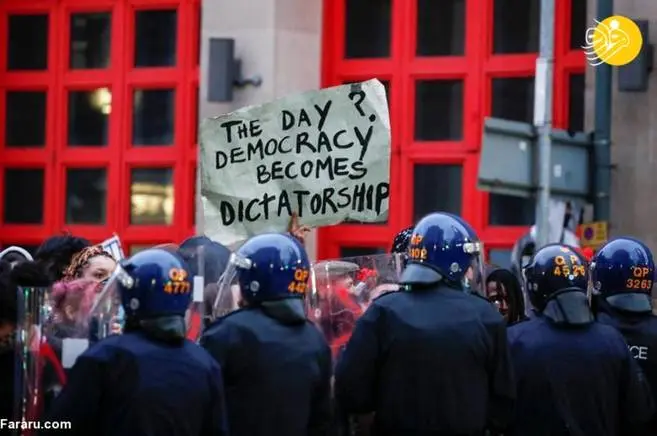 THE DAY ?
DEMOCRACY
BECOMES
DICTATORSHIP
QP
4773
QP
QP
QP
4526
QP
3263
Fararu.com